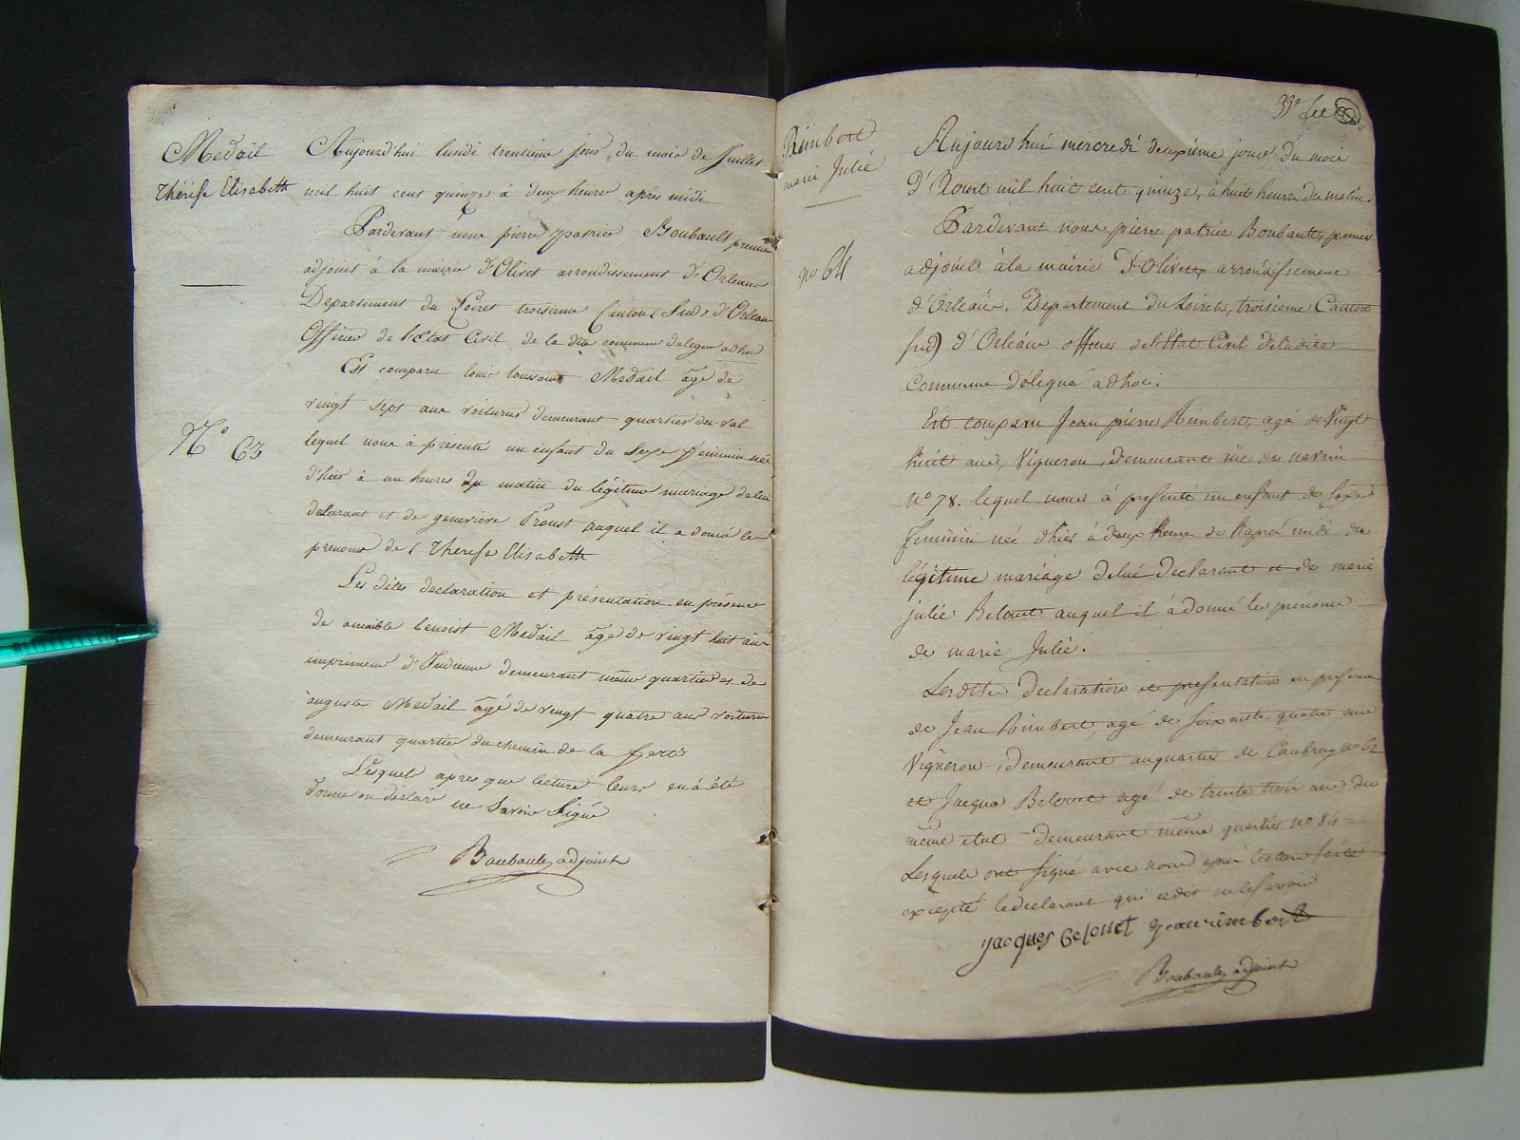 Medail
Thérèse Elisabeth
N° 63
Aujourd'hui lundi trentieme jour du mois de Juillet
mil huit cent quinze à deux heures après midi
Pardevant nous pierre patrice Boubault premier
adjoint à la mairie d'Olivet arrondissement d'Orleans
Departement du Loiret troisieme Canton (sud) d'Orleans
Officier de l'Etat Civil de la dte commune delegué ad hoc
Est comparu louis toussaint Medail âgé de
vingt sept ans voiturier demeurant quartier du val
lequel nous à présenté un enfant du Sexe feminin née
d'hier à heures du matin du légitime mariage de lui
declarant et de genevieve Proust auquel il a donné les
prenoms de Therese Elisabeth
Les dites declaration et présentation en présence
de aimable benoist Medail âgé de vingt huit ans
imprimeur d'Indienne demeurant même quartier et de
auguste Medail âgé de vingt quatre ans voiturier
demeurant quartier du chemin de la ferté
Lesquels apres que lecture leur en à été
donné on déclaré ne Savoir Signé
Boubault, adjoint
33e
Rimbert
marie Julie
no 64
Aujourd'hui mercredi deuxième jour du mois
D'Aout mil huit cent quinze, à huit heures du matin.
Pardevant nous pierre patrice Boubault, premier
adjoint à la mairie d'Olivet arrondissement
d'Orléans, Departement du Loiret, troisieme Canton
(sud) d'Orléans officier de l'Etat Civil de ladite
Commune délegué ad hoc.
Est comparu Jean pierre Rimbert, agé de Vingt
huit ans, Vigneron, demeurant
No 78. lequel nous à présenté un enfant de sexe
feminin née d'hier à deux heures de l'aprés midi du
légitime mariage de lui declarant et de marie
julie Belouet auquel il à donné les prenoms
de marie Julie.
Les dites declaration et présentation en présence
de Jean Rimbert, agé de soixante quatre ans
Vigneron, demeurant au quartier de Caubray no 62
et Jacques Belouet agé de trente trois ans du
même etat demeurant même quartier no 84
Lesquels ont signé avec nous aprés lecture faite
excepté le declarant qui a dit ne le savoir
jacques belouet jean rimbert
Boubault, adjoint